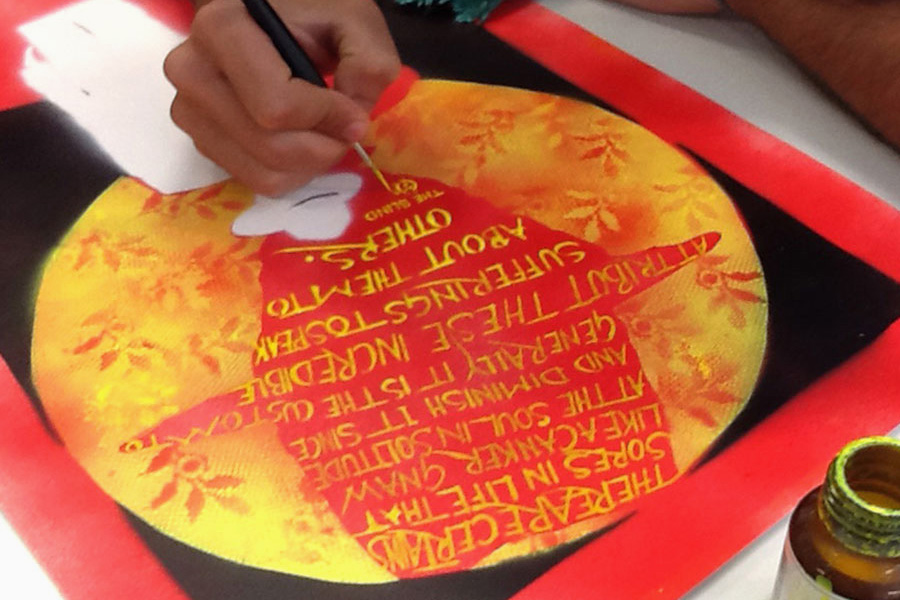 THERE ARE CERTAINS
SORES IN LIFE THAT
LIKE A CANKER GNAW
AT THE SOUL IN SOLITUDE
AND DIMINISH IT SINCE
GENERALLY IT IS THE CUSTOM TO
ATTRIBUT THESE INCREDIBLE
SUFFERINGS TO SPEAK
ABOUT THEM TO
OTHERS.
THE BLIND